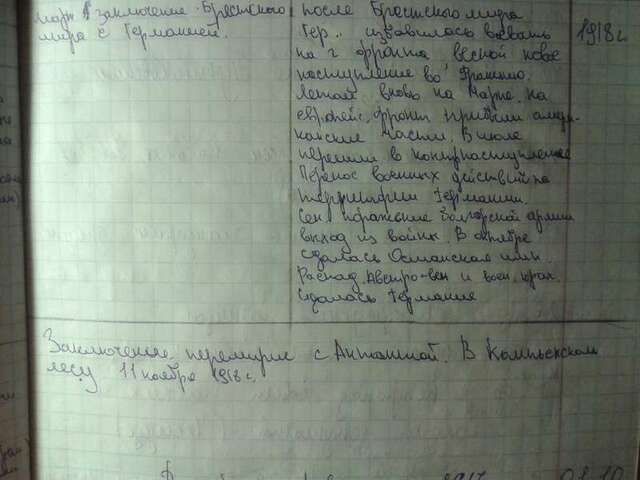 март заключение Брестского
мира с Германией.
после Брестского мира
Гер. избавилась воевать
на 2 фронта весной новое
наступление во Францию.
Летом вновь на Марне. на
европейс. фронт прибыли амер-
канские части. В июле
перешли в контрнаступление
Перенос военных действий на
территории Германии.
Сен поражение болгарской армии
выход из войны. В октябре
сдалась Османская имп.
Распад Австро-вен и воен.
сдалась Германия
1918 г.
Заключение перемирие с Антантой. В Компьенском
лесу 11 ноября 1918 г.